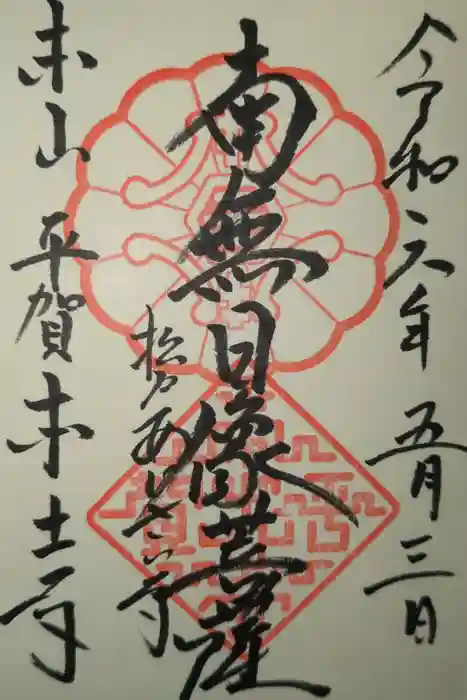 令和六年 五月三日
南無日像菩薩
松戸あじさい寺
本山 平賀 本土寺